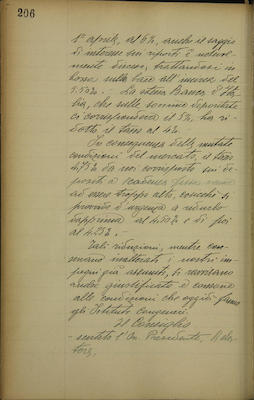 206
1° aprile, al 6%, anche il saggio
di interesse sui riporti è notevol-
mente diminuito, trattandosi in
borsa sulla base all'incirca del
5.50%. - La stessa Banca d'Ita-
lia, che sulle somme depositate
ci corrispondeva il 5%, ha ri-
dotto il tasso al 4%.
In conseguenza delle mutate
condizioni del mercato, il tasso
4.75% da noi corrisposto sui de-
positi a scadenza fissa
ad essere troppo alto, cosicchè si
provvide d'urgenza a ridurlo
dapprima al 4.50% e di poi
al 4.25%. -
Tali riduzioni, mentre con-
servano inalterati i nostri im-
pegni già assunti, si ravvisano
anche giustificate e consone
alle condizioni che oggidì fanno
gli Istituti congeneri.
Il Consiglio
- sentito l'On. Presidente, Rela-
tore,